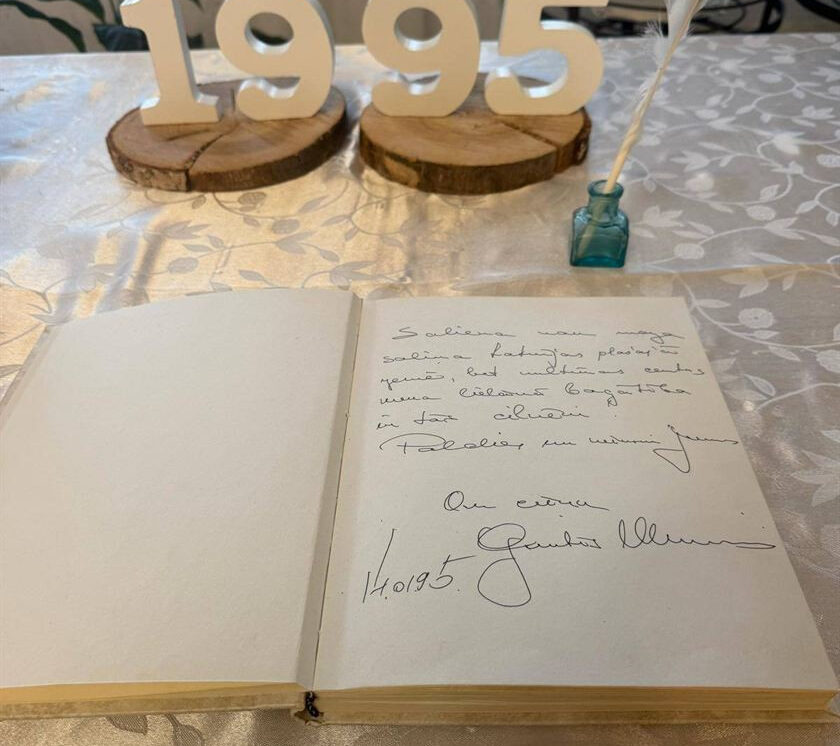 1995
Saliena nav maza
saliņa Latvijas plašajā
zemē, bet kultūras centrs
mūsu lielākā bagātība
ir tās cilvēki.
Paldies un
Ar cieņu
Guntis Ulmanis
14.01.95.